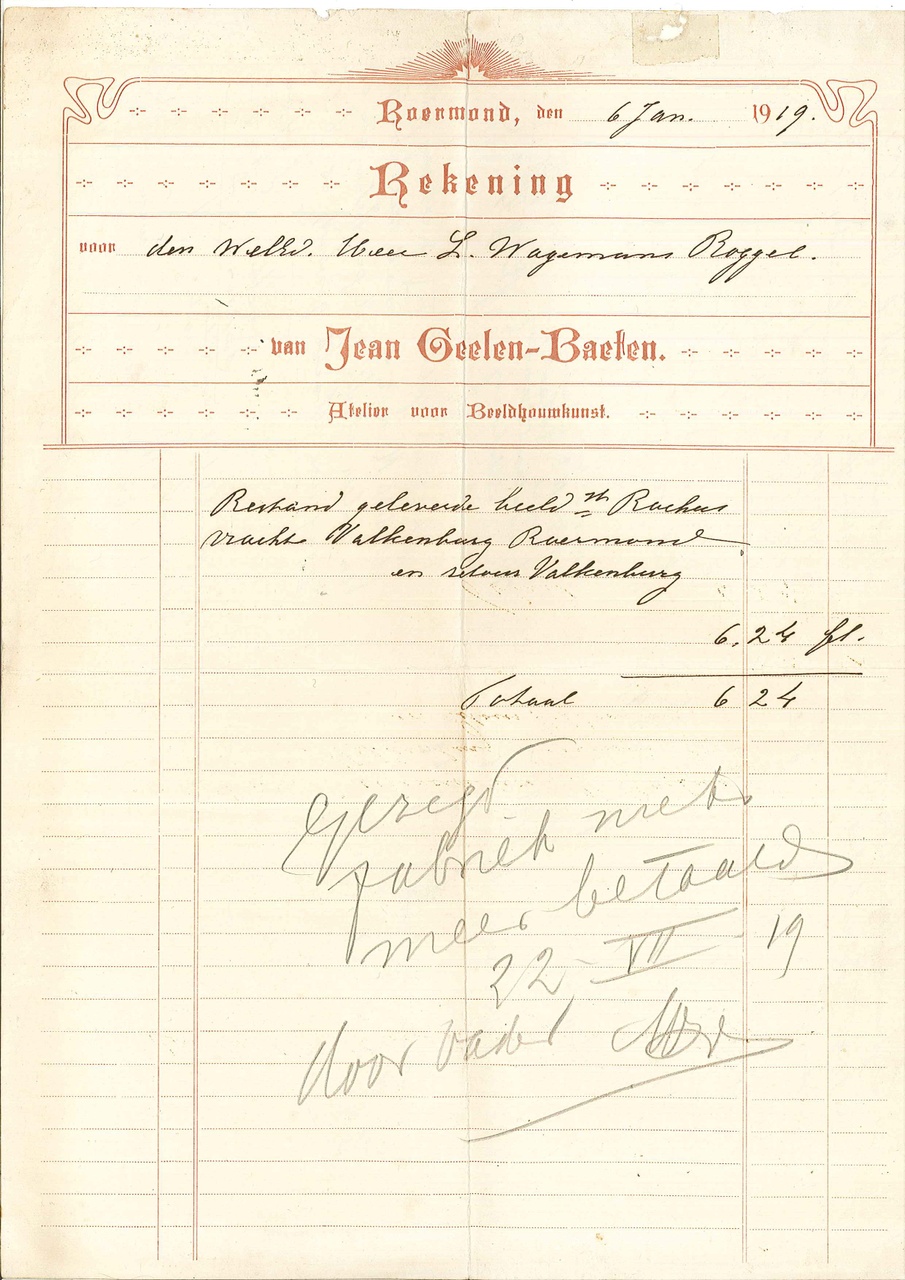 Roermond, den 6 Jan. 1919.
Rekening
voor den WelEd. Heer L. Wagemans Roggel.
van Jean Geelen-Baeten.
Atelier voor Beeldhouwkunst.
Restand geleverde beeld St Rochus
vracht Valkenburg Roermond
en retour Valkenburg
6.24 fl.
Totaal 6 24
Gezegd
fabriek niet
meer betaald
22-VII-19
door vader